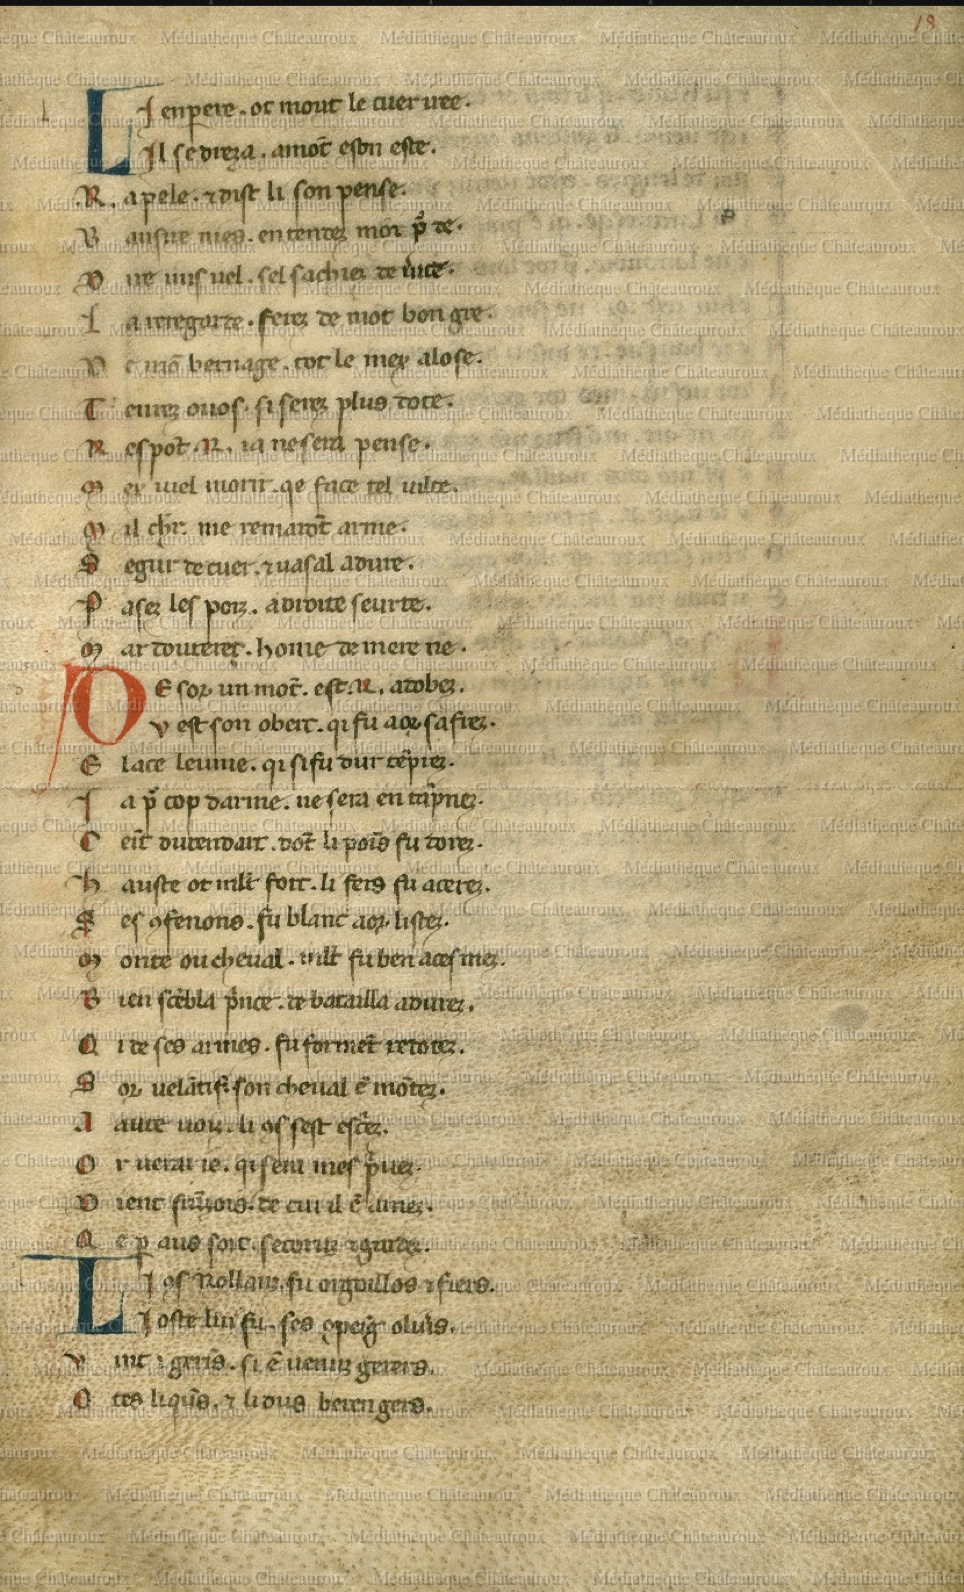 18
LI enpere . ot mout le cuer iree .
Il se dreza . a mot eson este .
R apele . ⁊ dist li son pense .
B ausire nies . en tendez mot
D ire vus vel . sel sachiez de
L a reregarde . ferez de mot bon gre .
D e mō bernage . tot le mex alose .
T enrez o vos . si serez plus dote .
R espōt . R . ia ne sera pense .
M ex vuel morir . qe face tel vilte .
M il chr . me remarōt arme .
S egur de cuer . ⁊ vasal adure .
P asez les porz . a droite seurte .
M ar douterez . home de mere ne .
DE sor un mōt . est . R . adobez .
V est son oberc . qi fu a or safrez .
E lace leume . qi si fu dur tēprez .
I a p cop darme . ne sera en
C eīt durendart . dōt li poīs fu dorez .
H auste ot mlt fort . li fers fu acerez .
S es 9fenons . fu blanc a or listez .
M onte ou cheval . mlt fu ben acesmez .
B ien sēbla pnce . de batailla adurez .
Q i de ses armes . fu formēt redotez .
S or velātif . son cheval ē mōtez .
A aute voiz . li 9s sest
O r verai ie . qi sera mes
D ient frāzois . de cui il ē amez .
Q e p aus sort . secoruz ⁊
LI 9s Rollanz . fu orgoillos ⁊ fiers .
I oste lui fu . ses oliv's .
V int i gerīs . si ē venuz gerers .
O tes li qūs . ⁊ li dus berengers .
Médiathèque Châteauroux